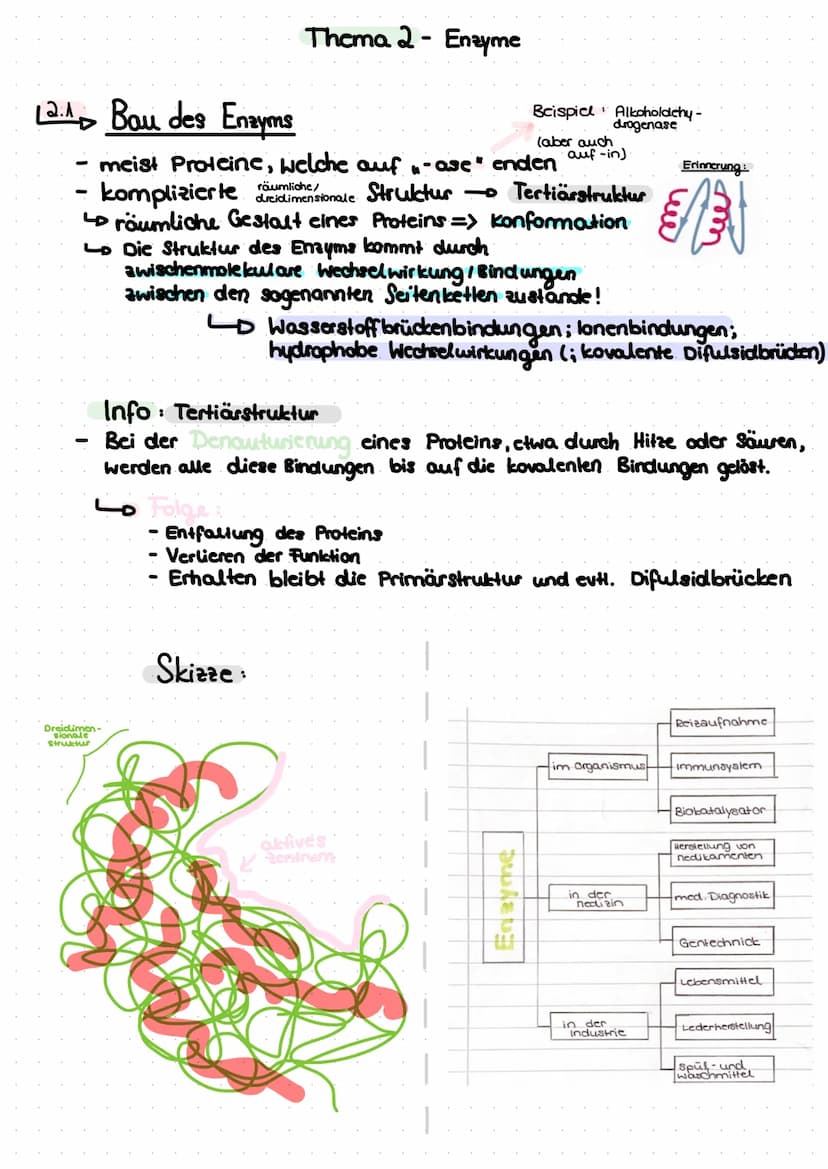 Thema 2 - Enzyme
2.1 Bau des Enzyms
Beispiel: Alkoholdehy-
drogenase
(aber auch
auf -in)
- meist Proteine, welche auf "-ase" enden
Erinnerung:
- komplizierte räumliche/dreidimensionale Struktur → Tertiärstruktur
↳ räumliche Gestalt eines Proteins => Konformation
↳ Die Struktur des Enzyms kommt durch
zwischenmolekulare Wechselwirkung/Bindungen
zwischen den sogenannten Seitenketten zustande!
↳ Wasserstoffbrückenbindungen; Ionenbindungen;
hydrophobe Wechselwirkungen (; kovalente Difulsidbrücken)
Info: Tertiärstruktur
- Bei der Denauturierung eines Proteins, etwa durch Hitze oder Säuren,
werden alle diese Bindungen bis auf die kovalenten Bindungen gelöst.
↳ Folge:
- Entfaltung des Proteins
- Verlieren der Funktion
- Erhalten bleibt die Primärstruktur und evtl. Difulsidbrücken
Skizze:
Dreidimen-
sionale
Struktur
aktives
Zentrum
Enzyme
im Organismus
Reizaufnahme
Immunsystem
Biokatalysator
in der
Medizin
Herstellung von
Medikamenten
med. Diagnostik
Gentechnick
in der
Industrie
Lebensmittel
Lederherstellung
Spül- und
Waschmittel